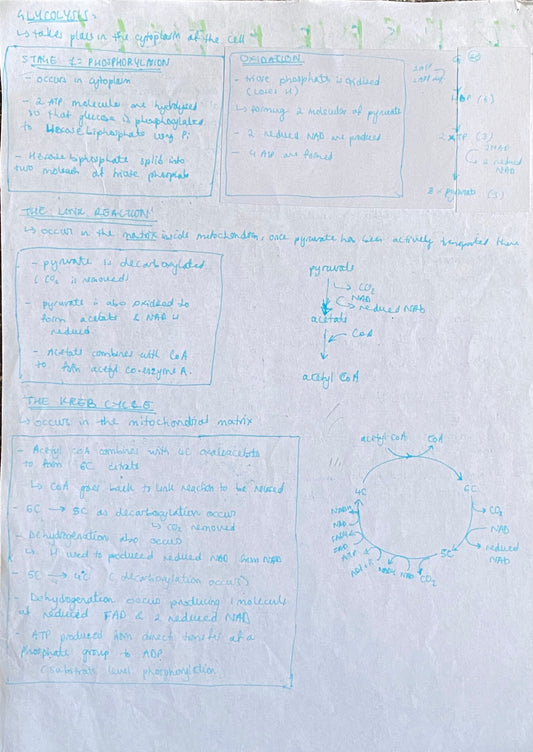 GLYCOLYSIS:
↳ takes place in the cytoplasm of the cell
STAGE 1: PHOSPHORYLATION
- occurs in cytoplasm
- 2 ATP molecules are hydrolysed
so that glucose is phosphorylated
to Hexose biphosphate using Pi
- Hexose bisphosphate split into
two molecules of triose phosphate
OXIDATION
- triose phosphate is oxidised
(loses H)
↳ forming 2 molecules of pyruvate
- 2 reduced NAD are produced
- 4 ATP are formed
2 ATP
(6)
2 × TP (3)
2 NAD
2 reduced
NAD
2 × pyruvate (3)
THE LINK REACTION
↳ occurs in the matrix inside mitochondria, once pyruvate has been actively transported there
- pyruvate is decarboxylated
(CO₂ is removed)
- pyruvate is also oxidised to
form acetate & NAD is
reduced
- Acetate combines with CoA
to form acetyl co-enzyme A.
pyruvate
CO₂
NAD
reduced NAD
acetate
CoA
acetyl CoA
THE KREB CYCLE
↳ occurs in the mitochondrial matrix
- Acetyl CoA combines with 4C oxaloacetate
to form 6C citrate
↳ CoA goes back to link reaction to be reused
- 6C → 5C as decarboxylation occurs
↳ CO₂ removed
- Dehydrogenation also occurs
↳ H used to produced reduced NAD from NAD
- 5C → 4C (decarboxylation occurs)
- Dehydrogenation occurs producing 1 molecule
of reduced FAD & 2 reduced NAD
- ATP produced from direct transfer of a
phosphate group to ADP
(substrate level phosphorylation
acetyl CoA
CoA
4C
6C
CO₂
NAD
reduced
NAD
5C
CO₂
NAD
NADH
ADP + Pi
ATP
FAD
FADH
NAD
NADH